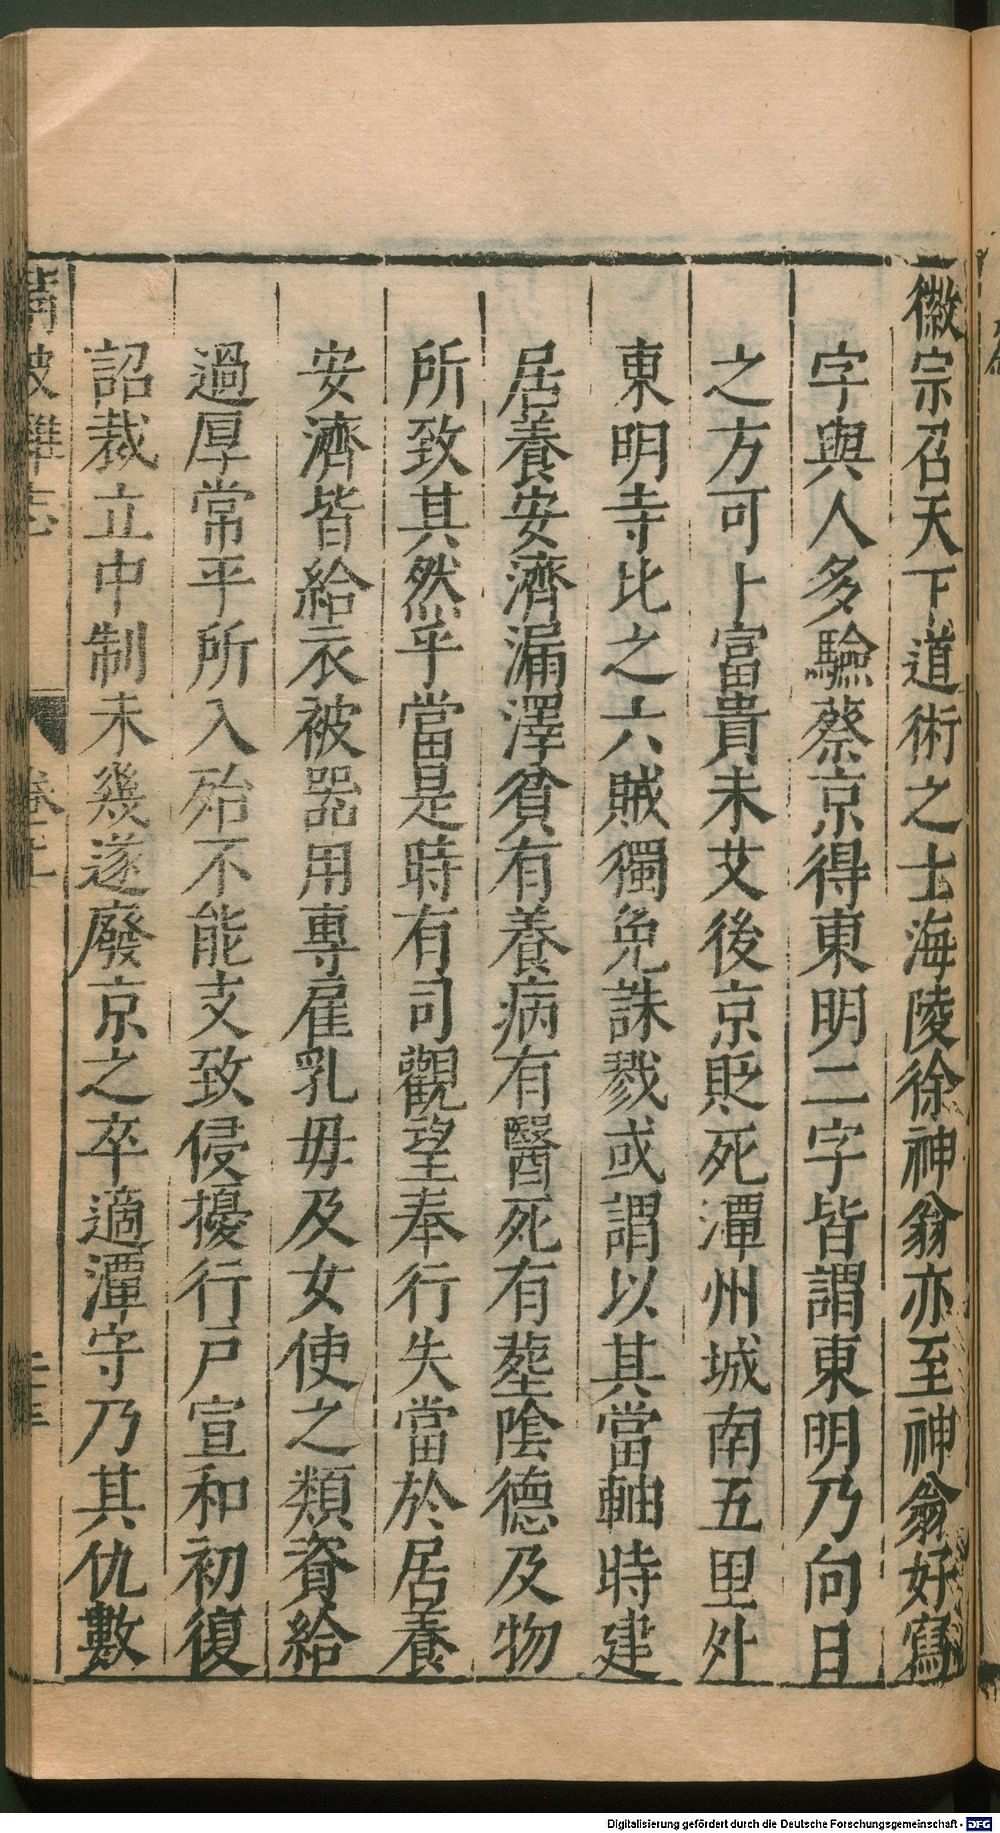 徽宗召天下道術之士海陵徐神翁亦至神翁好寫
字與人多驗蔡京得東明二字皆謂東明乃向日
之方可卜富貴未艾後京貶死潭州城南五里外
東明寺比之六賊獨免誅戮或謂以其當軸時建
居養安濟漏澤貧有養病有醫死有塟陰德及物
所致其然乎當是時有司觀望奉行失當於居養
安濟皆給衣被器用專雇乳毋及女使之類資給
過厚常平所入殆不能支致侵擾行戸宣和初復
詔裁立中制未幾遂廢京之卒適潭守乃其仇數
清波雜志
Digitalisierung gefördert durch die Deutsche Forschungsgemeinschaft - DFG